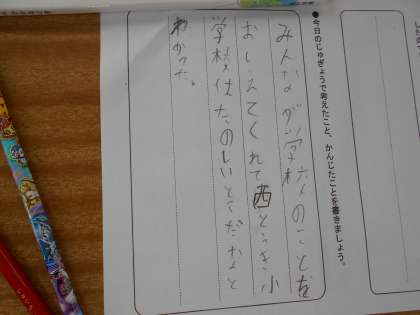 したので
●今日のじゅぎょうで考えたこと、かんじたことを書きましょう。
みんなが学校のことを
おしえてくれて西とうき小
学校は たのしいとこだなと
わかった。